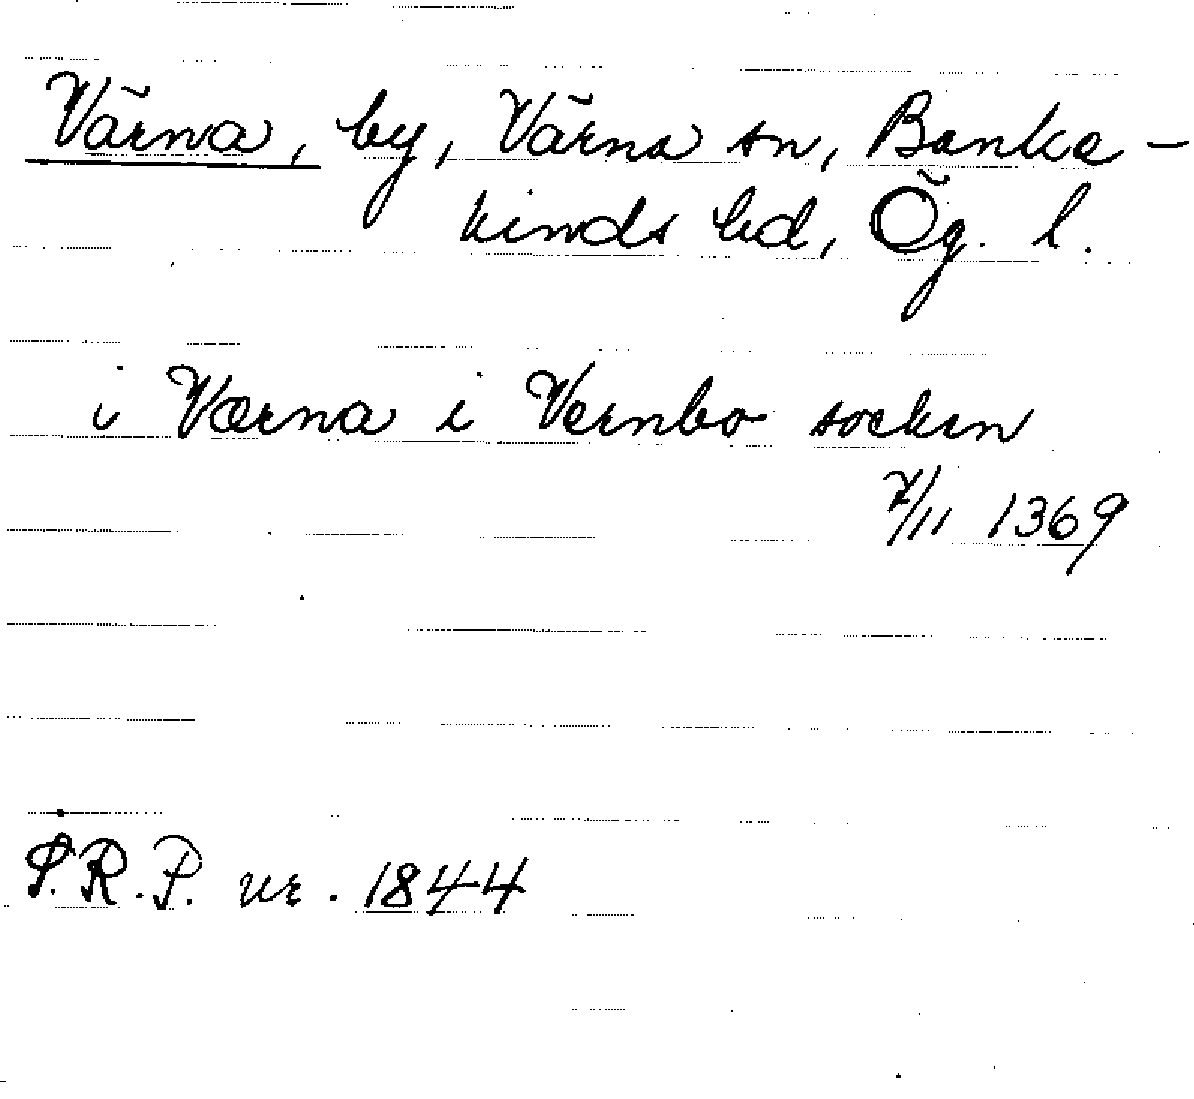 Värna, by, Värna sn, Banke-
kinds hd, Ög. l.
i Værna i Vernbo socken
7/11 1369
S.R.P. nr. 1844